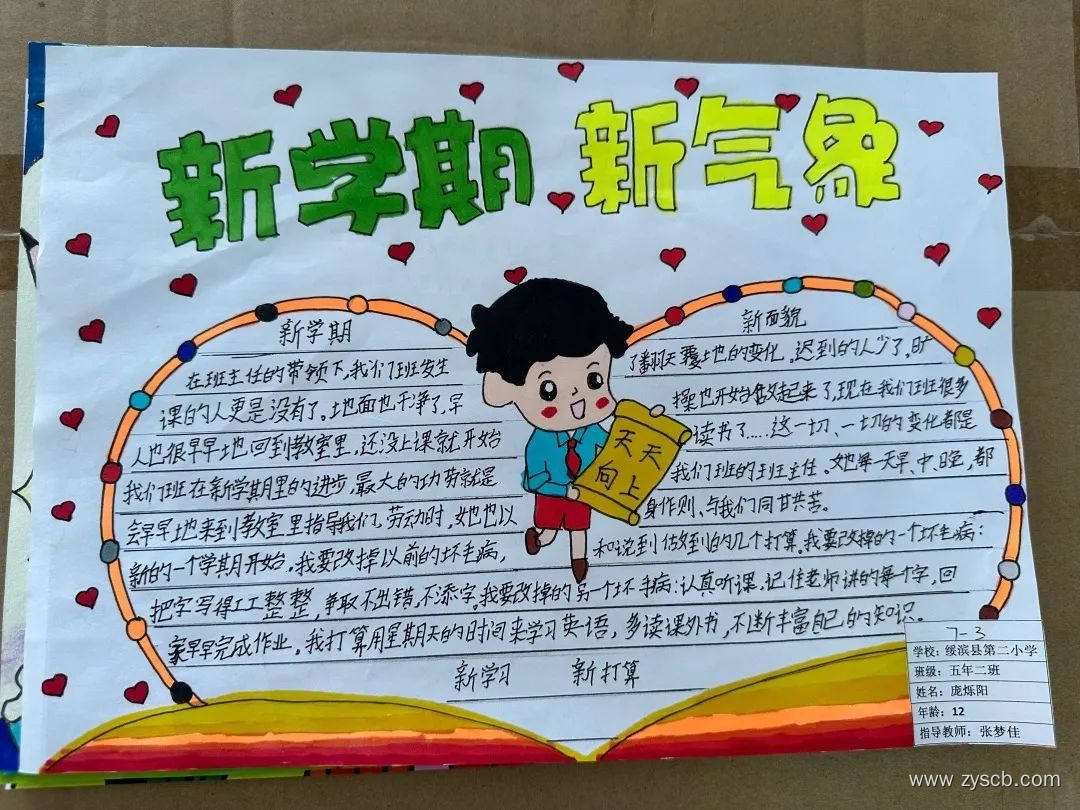 新学期 新气象
新学期 新面貌
在班主任的带领下,我们班发生了翻天覆地的变化。迟到的人少了。旷
课的人更是没有了。地面也干净了,早操也开始做起来了,现在我们班很多
人也很早早地回到教室里,还没上课就开始读书了.....这一切、一切的变化都是
我们班在新学期里的进步,最大的功劳就是我们班的班主任、她每一天早、中、晚,都
会早早地来到教室里指导我们。劳动时,她也以身作则、与我们同甘共苦。
新的一个学期开始。我要改掉以前的坏毛病,和说到做到的几个打算。我要改掉的一个坏毛病:
把字写得工工整整,争取不出错,不添字。我要改掉的另一个坏毛病:认真听课。记住老师讲的每个字,回
家早早完成作业。我打算用星期天的时间来学习英语,多读课外书,不断丰富自己的知识。
新学习 新打算
天天
向上
7-3
学校:绥滨县第二小学
班级:五年二班
姓名:庞烁阳
年龄:12
指导教师:张梦佳
www.zyscb.com